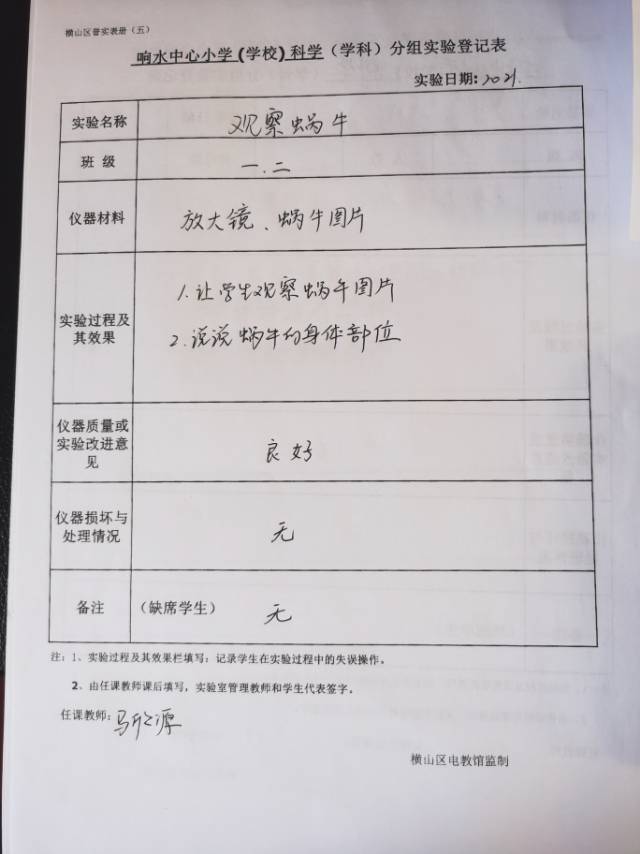 横山区普实表册（五）
响水中心小学(学校)科学（学科）分组实验登记表
实验日期:2021.
实验名称 观察蜗牛
班 级 一.二
仪器材料 放大镜、蜗牛图片
实验过程及其效果 1.让学生观察蜗牛图片
2.说说蜗牛的身体部位
仪器质量或
实验改进意
见
良好
仪器损坏与
处理情况
无
备注 （缺席学生） 无
注：1、实验过程及其效果栏填写：记录学生在实验过程中的失误操作。
2、由任课教师课后填写，实验室管理教师和学生代表签字。
任课教师:马
横山区电教馆监制